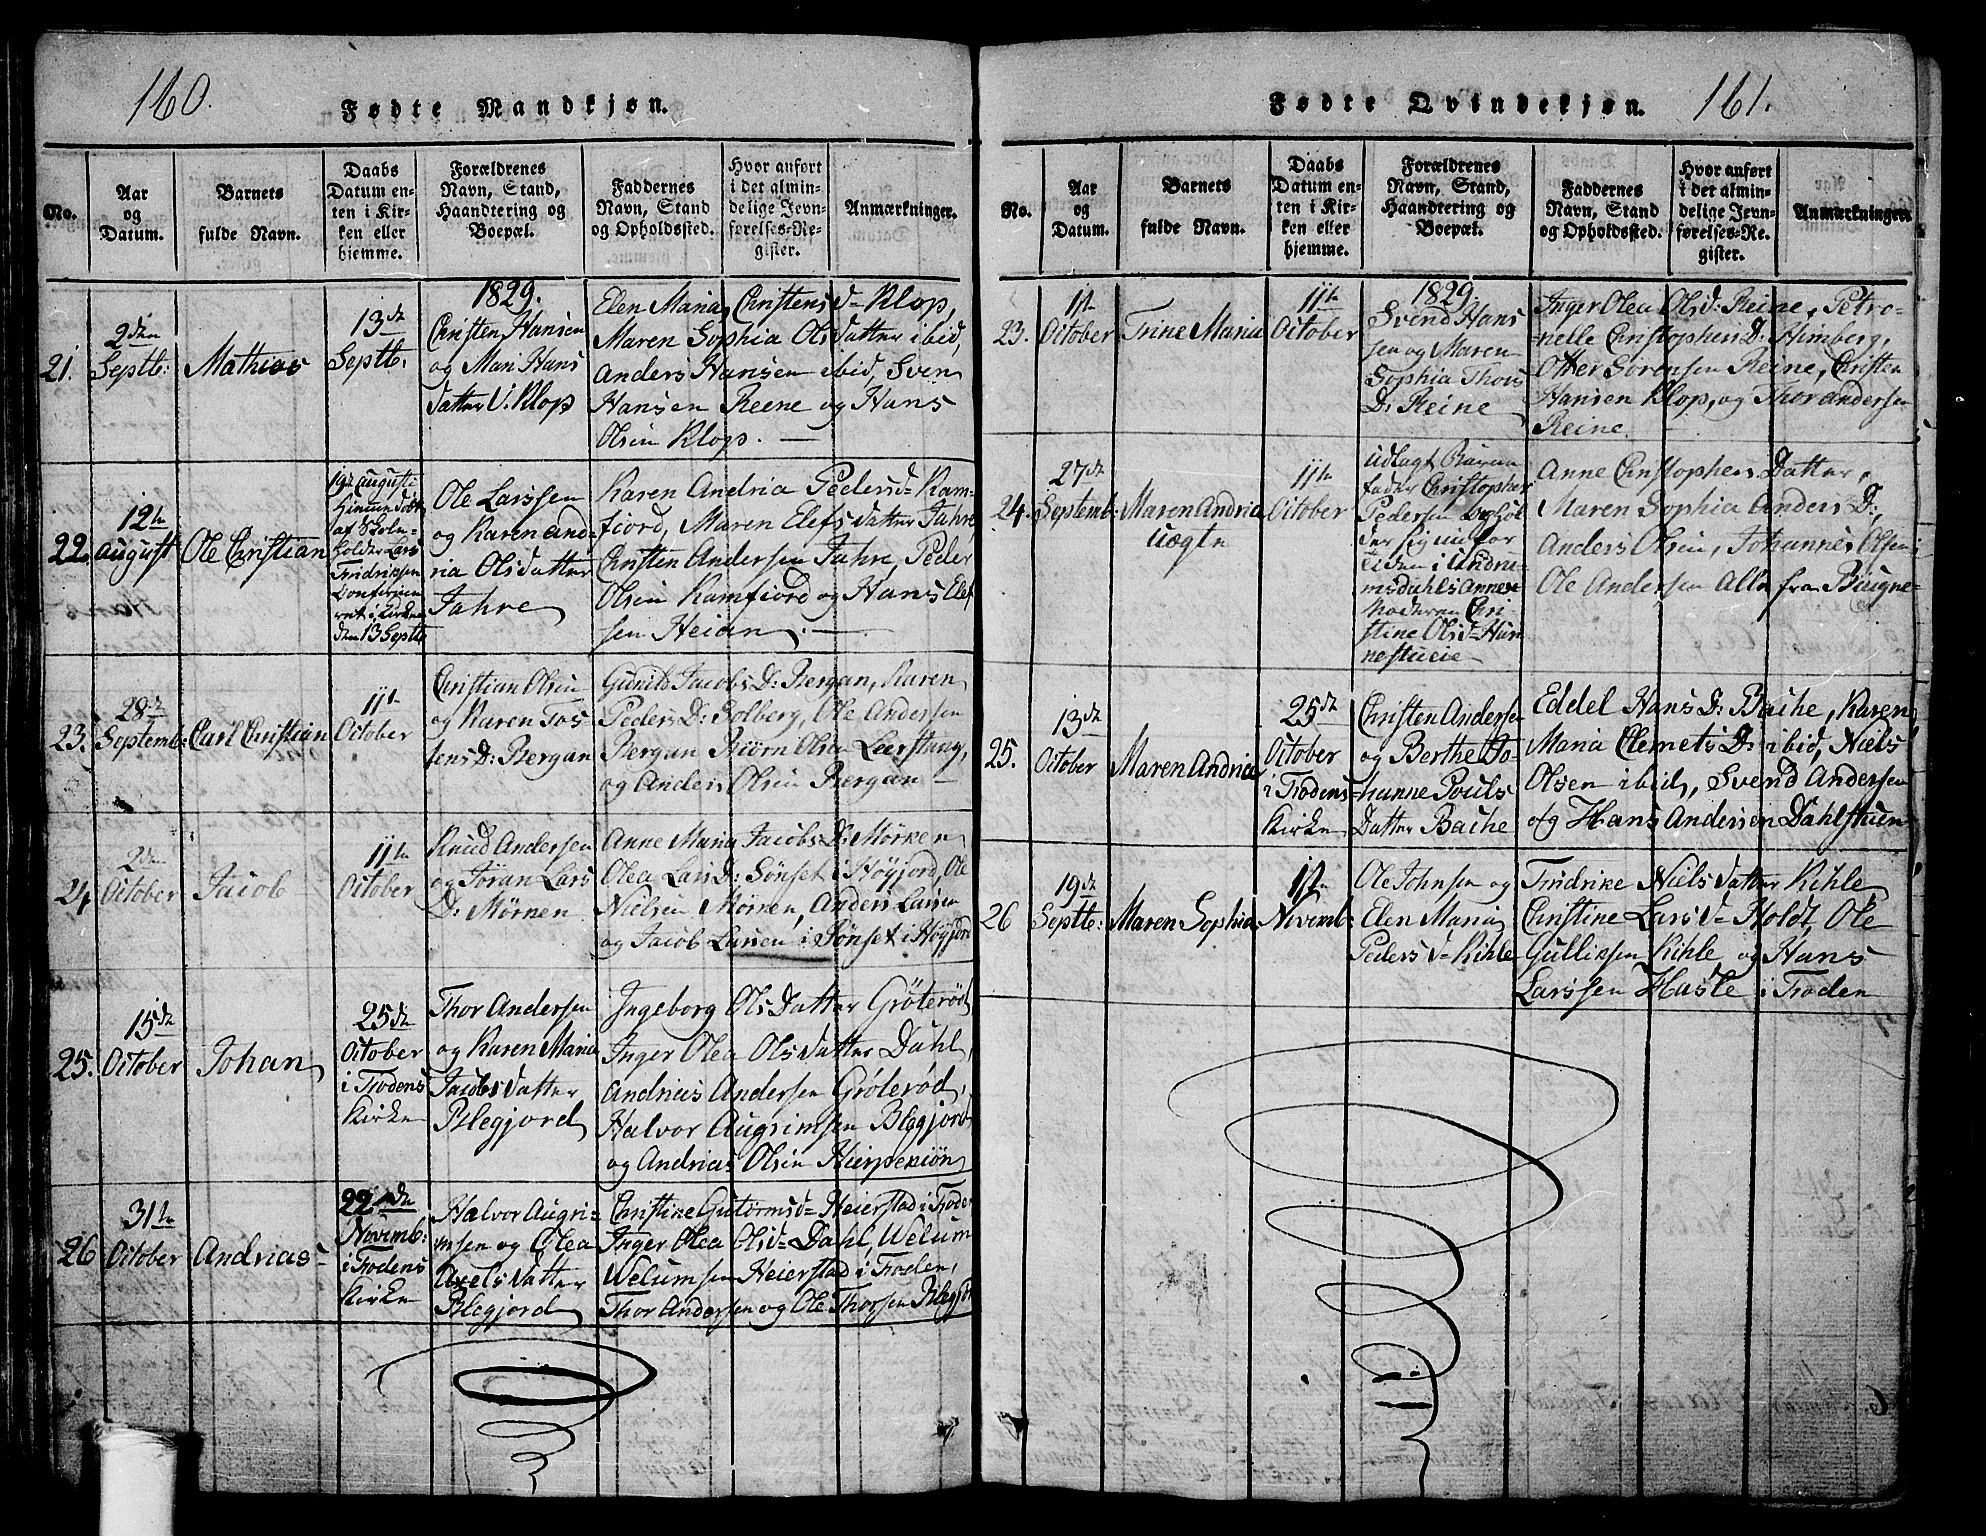 160.
Fødte Mandkjøn.
No.
Aar
og
Datum.
Barnets
fulde Navn.
Daabs
Datum en-
ten i Kir-
ken eller
hjemme.
Forældrenes
Navn, Stand,
Haandtering og
Boepæl.
Faddernes
Navn, Stand
og Opholdssted.
Hvor anført
i det almin-
delige Jevn-
førelses-Re-
gister.
Anmærkninger.
21.
2den
Septb:
Mathias
13de
Septb:
1829.
Christen Hansen
og Mari Hans
datter V. Klop
Elen Maria Christensd= Klop,
Maren Sophia Olsdatter ibid,
Anders Hansen ibid, Sven
Hansen Reine og Hans
Olsen Klop. —
22.
12te
August
Ole Christian
19de Augusti
Himmedøbt
af Skole-
holder Lars
Fridriksen
Confirmeret i Kirken
den 13 Septb
Ole Larssen
og Karen And-
ria Olsdatter
Jahre
Karen Andria Pedersd= Ram-
fiord, Maren Elefsdatter Jahre,
Christen Andersen Jahre, Peder
Olsen Ramfiord og Hans Elef
sen Heian. —
23.
28de
Septemb:
Carl Christian
11te
October
Christian Olsen
og Karen Tos-
tens D: Bergan
Gunild Jacobs D: Bergan, Karen
Peders D: Solberg, Ole Andersen
Bergan Biørn Olsen Leerstang,
og Anders Olsen Bergan —
24.
2den
October
Jacob
11te
October
Knud Andersen
og Jøran Lars
D: Mørken
Anne Maria Jacobs D: Mørken
Olea Lars D: Sønset i Høyjord, Ole
Nielsen Mørken, Anders Larsen
og Jacob Larsen i Sønset i Høyjord
25.
15de
October
Johan
25de
October
i Frodens
Kirke
Thor Andersen
og Karen Maria
Jacobsdatter
Blegjord
Ingeborg Olsdatter Grøterød
Inger Olea Olsdatter Dahl,
Andrias Andersen Grøterød,
Halvor Augrimsen Blegjord
og Andrias Olsen Hierpekiøn
26
31te
October
Andrias
22de
Novemb:
i Frodens
Kirke
Halvor Augri-
msen og Olea
Axelsdatter
Blegjord
Christine Gutormsd= Heierstad i Froden
Inger Olea Olsd= Dahl, Welum
Welumsen Heierstad i Froden,
Thor Andersen og Ole Thorsen Blegjord
161.
Fødte Qvindekjøn.
No.
Aar
og
Datum.
Barnets
fulde Navn.
Daabs
Datum en-
ten i Kir-
ken eller
hjemme.
Forældrenes
Navn, Stand,
Haandtering og
Boepæl.
Faddernes
Navn, Stand
og Opholdssted.
Hvor anført
i det almin-
delige Jevn-
førelses-Re-
gister.
Anmærkninger.
23.
1ste
October
Trine Maria
11te
October
1829
Svend Hans
sen og Maren
Sophia Thors
D: Reine
Inger Olea Olsd: Reine, Petro-
nelle Christophers D: Himberg,
Otter Sørensen Reine, Christen
Hansen Klop, og Thor Andersen
Reine.
24.
27de
Septemb:
Maren Andria
uægte
11te
October
Udlagt Barne
fader Christopher
Pedersen
der sig
i Undru-
msdahls Annex
Moderen Chri-
stine Olsd=
Anne Christophers Datter,
Maren Sophia Anders D:,
Anders Olsen, Johannes Olsen
Ole Andersen Alle fra Bugne-
25.
13de
October
Maren Andria
25de
October
i Frodens
Kirke
Christen Andersen
og Berthe Jo-
hanne Pouls
Datter Bache
Eddel Hans D: Bache, Karen
Maria Clemets D: ibid, Niels
Olsen ibid, Svend Andersen
og Hans Andersen Dahlstuen
26
19de
Septb:
Maren Sophia
1ste
Novemb:
Ole Johnsen og
Elen Maria
Peders d= Kihle
Fridrike Nielsdatter Kihle
Christine Larsd= Holdt, Ole
Gulliksen Kihle og Hans
Larssen Hasle i Froden